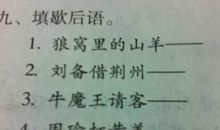 九、填歇后语。
1. 狼窝里的山羊——
2. 刘备借荆州——
3. 牛魔王请客——